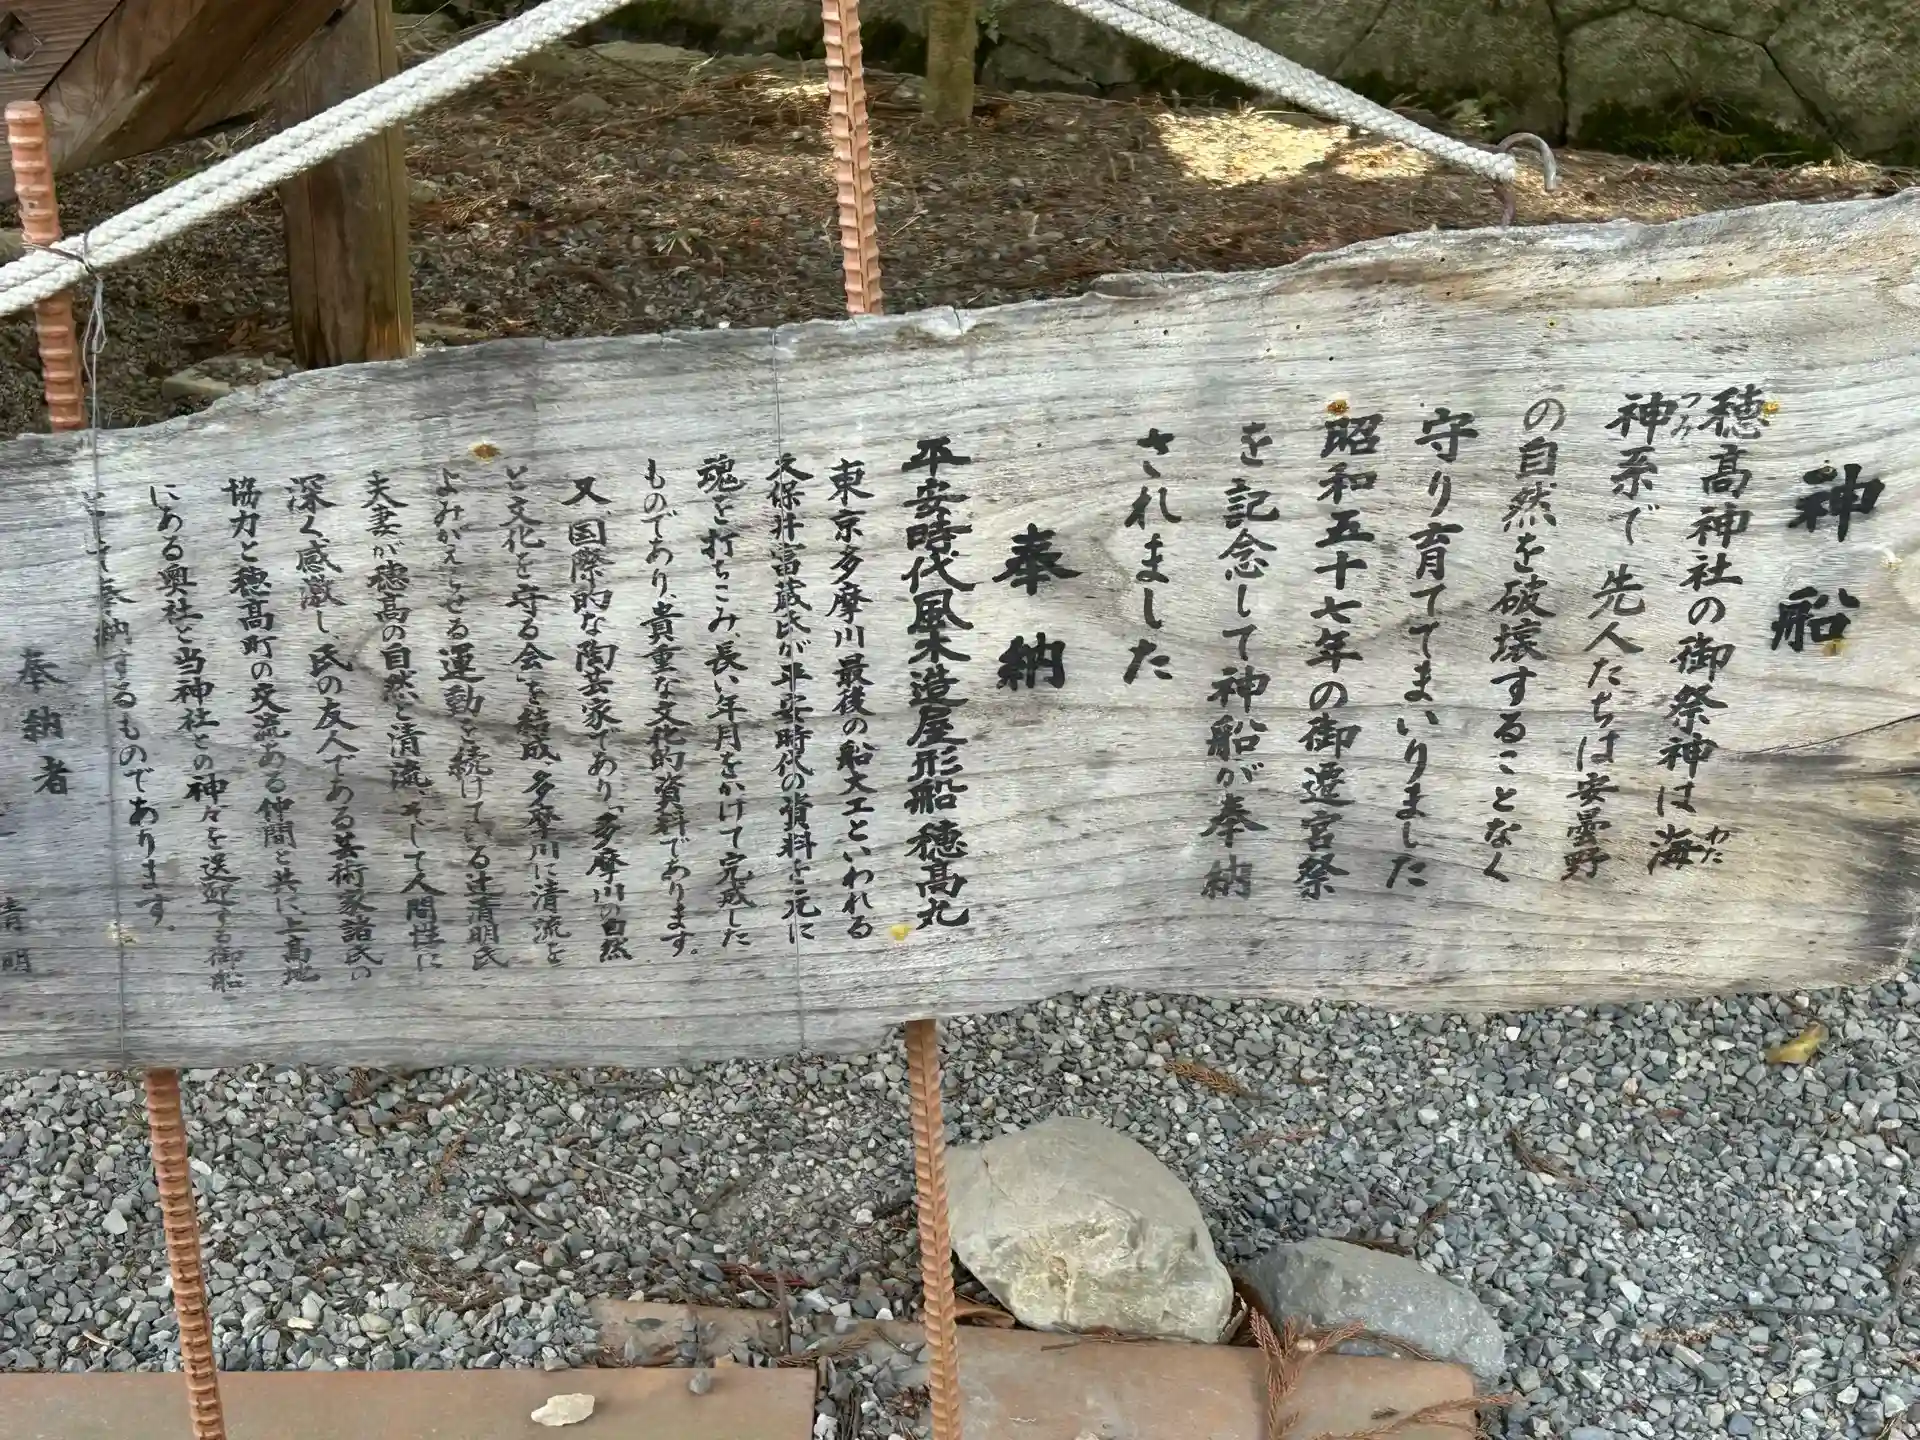 神船
穂高神社の御祭神は海
わた
神系で先人たちは安曇野
つみ
の自然を破壊することなく
守り育ててまいりました
昭和五十七年の御遷宮祭
を記念して神船が奉納
されました
奉納
平安時代風木造屋形船 穂高丸
東京多摩川最後の船大工といわれる
久保井富蔵氏が平安時代の資料を元に
魂を打ちこみ、長い年月をかけて完成した
ものであり、貴重な文化的資料であります。
又、国際的な陶芸家であり、「多摩川の自然
と文化を守る会」を結成、多摩川に清流を
よみがえらせる運動を続けている辻清明氏
夫妻が穂高の自然と清流、そして人間性に
深く感激し、氏の友人である芸術家諸氏の
協力と穂高町の交流ある仲間と共に、上高地
にある奥社と当神社との神々を送迎する御船
として奉納するものであります。
奉納者
清明